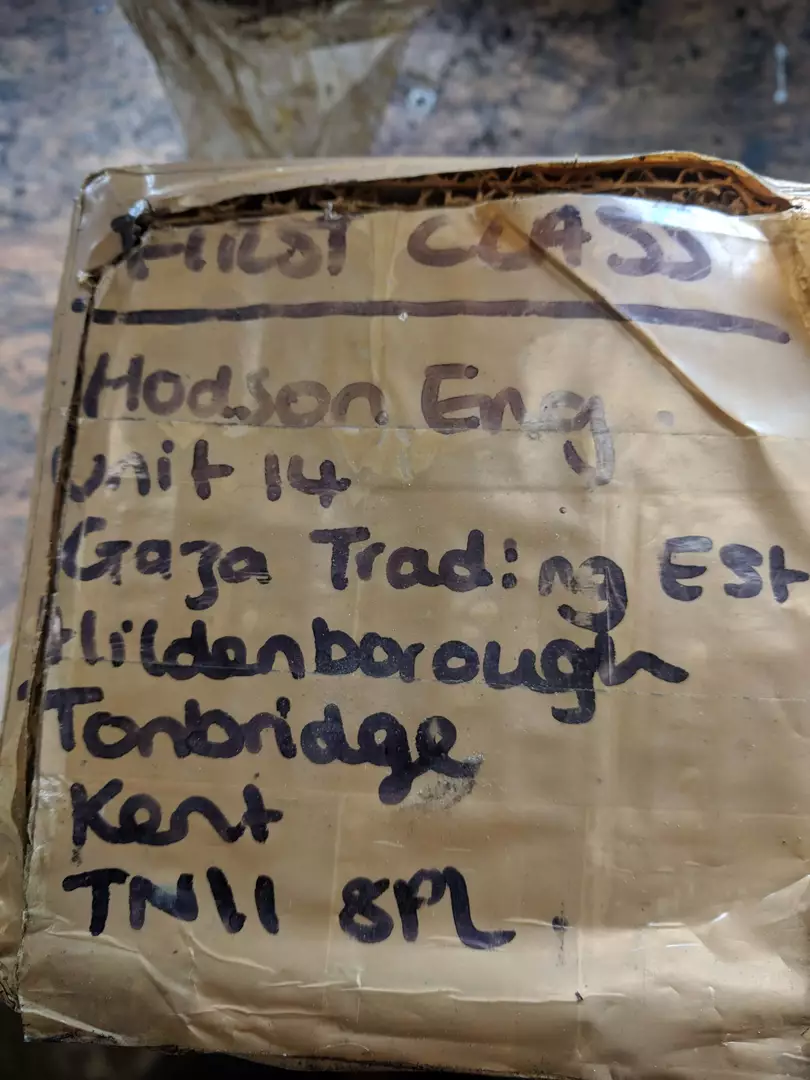 FIRST CLASS
Hodson Eng.
Unit 14
Gaza Trading Est
Hildenborough
Tonbridge
Kent
TN11 8PL.